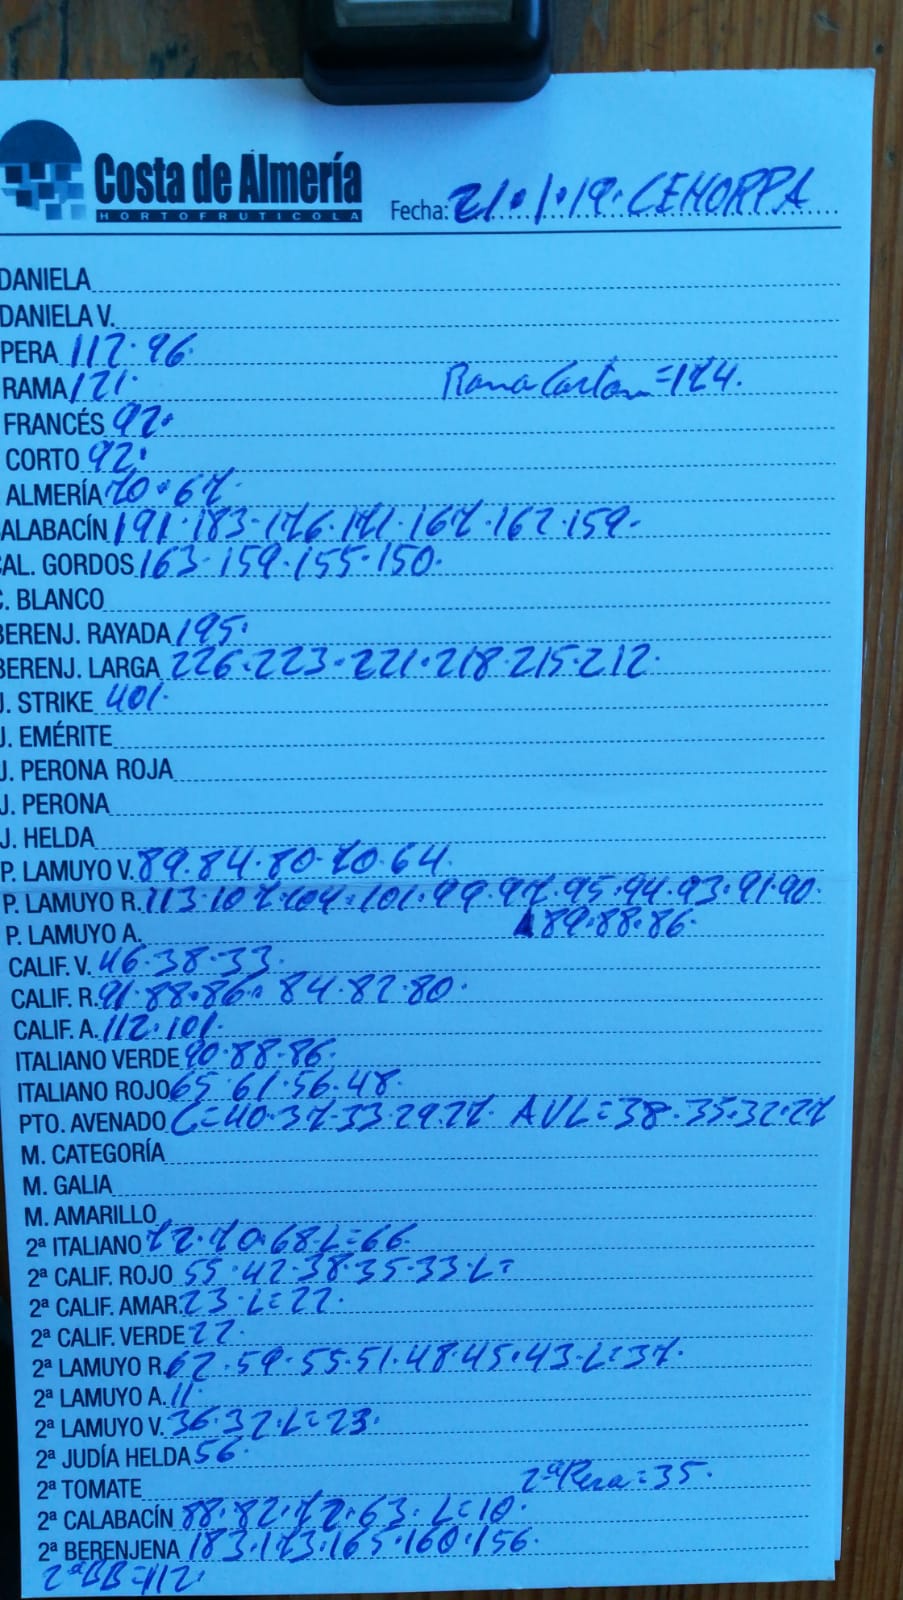 Costa de Almería
HORTOFRUTICOLA
Fecha: 21·1·19· CEHORPA
DANIELA
DANIELA V.
PERA 112·96·
RAMA 121· Rama Carton=174.
FRANCÉS 92·
CORTO 92·
ALMERÍA 70·67·
ALABACÍN 191·183·176·171·167·162·159·
CAL. GORDOS 163·159·155·150·
C. BLANCO
BERENJ. RAYADA 195·
BERENJ. LARGA 226·223·221·218·215·212·
J. STRIKE 401·
J. EMÉRITE
J. PERONA ROJA
J. PERONA
J. HELDA
P. LAMUYO V. 89·84·80·70·64·
P. LAMUYO R. 113·107·104·101·99·97·95·94·93·91·90·
P. LAMUYO A. 89·88·86·
CALIF. V. 46·38·33·
CALIF. R. 91·88·86·84·82·80·
CALIF. A. 112·101·
ITALIANO VERDE 90·88·86·
ITALIANO ROJO 65·61·56·48·
PTO. AVENADO C=40·37·33·29·27· AVL=38·35·32·27
M. CATEGORÍA
M. GALIA
M. AMARILLO
2ª ITALIANO 72·70·68·L=66·
2ª CALIF. ROJO 55·42·38·35·33·L=
2ª CALIF. AMAR. 23·L=22·
2ª CALIF. VERDE 22·
2ª LAMUYO R. 62·59·55·51·48·45·43·L=37·
2ª LAMUYO A. 11·
2ª LAMUYO V. 36·32·L=23·
2ª JUDÍA HELDA 56·
2ª TOMATE 2ª Pera=35·
2ª CALABACÍN 88·82·72·63·L=10·
2ª BERENJENA 183·173·165·160·156·
2ªBB=112·